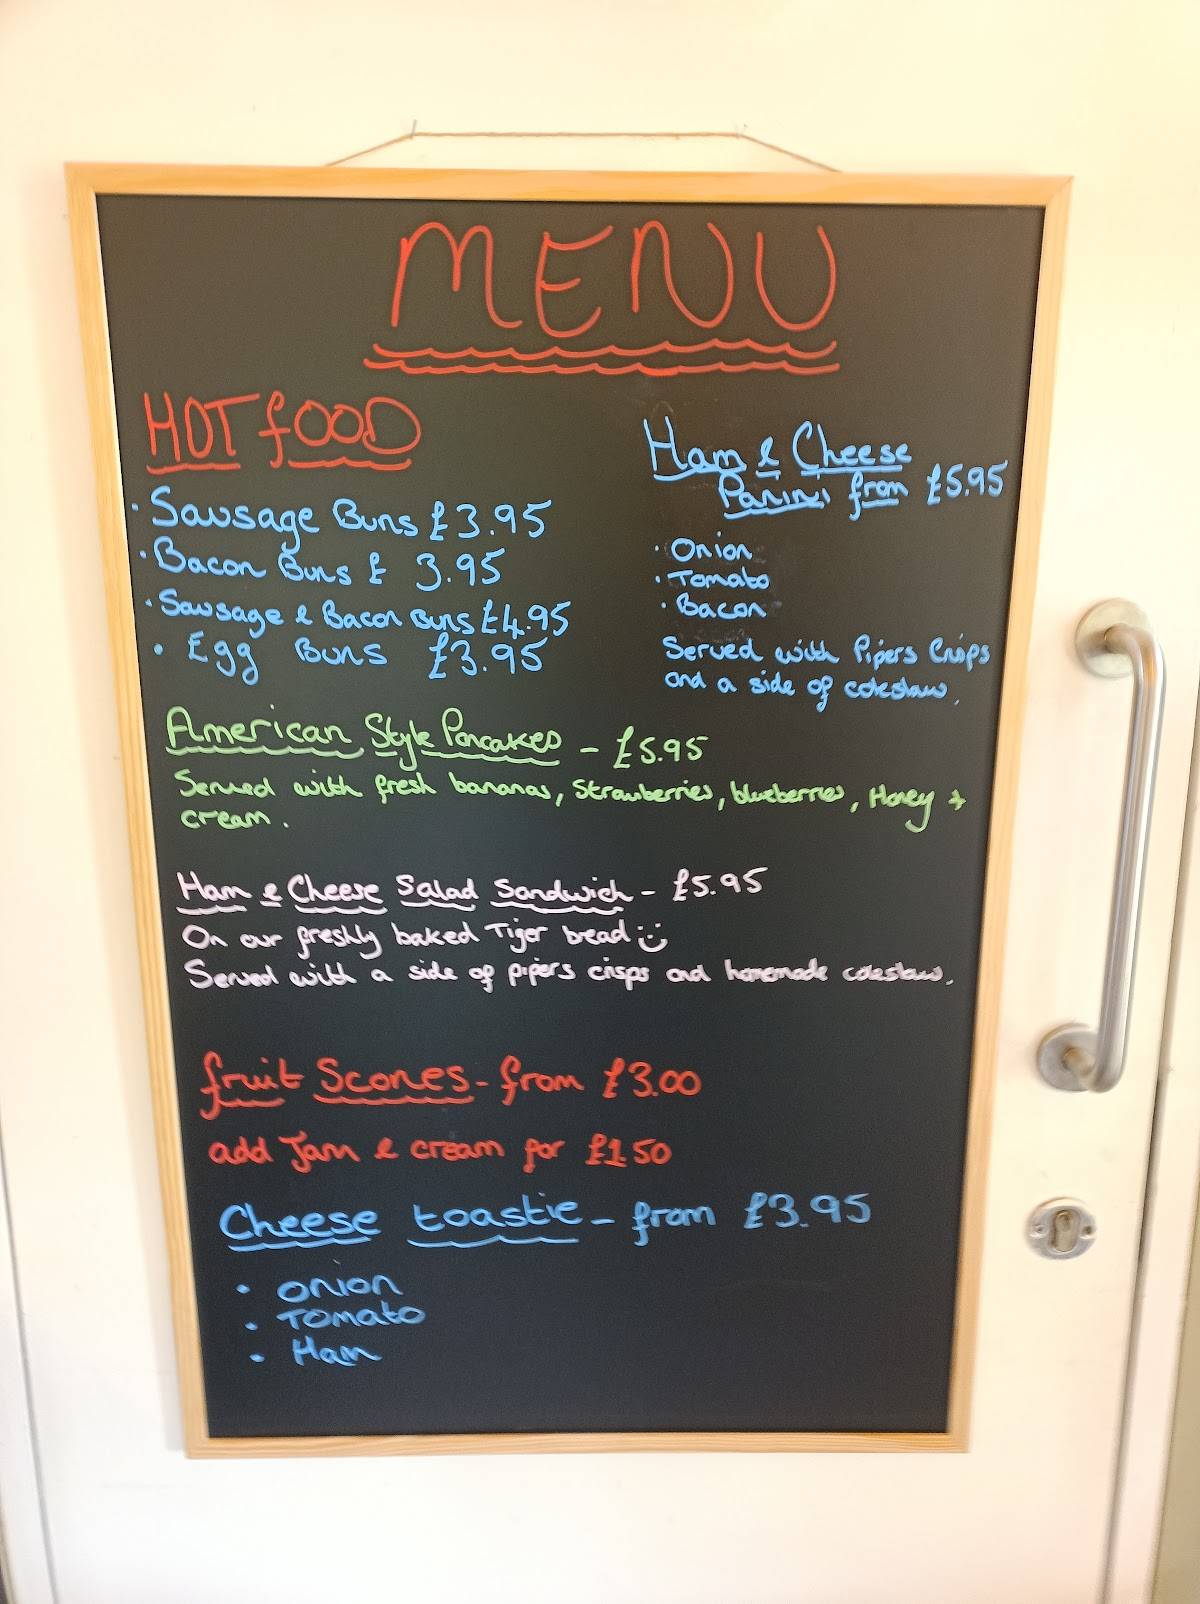 MENU
HOT fOOD
• Sausage Buns £3.95
• Bacon Buns £ 3.95
• Sausage & Bacon Buns £4.95
• Egg Buns £3.95
Ham & Cheese
Panini from £5.95
• Onion
• Tomato
• Bacon
Served with Pipers Crisps
and a side of coleslaw.
American Style Pancakes - £5.95
Served with fresh bananas, Strawberries, blueberries, Honey +
cream.
Ham & Cheese Salad Sandwich - £5.95
On our freshly baked Tiger bread :)
Served with a side of pipers crisps and homemade coleslaw.
fruit Scones - from £3.00
add Jam & cream for £1.50
Cheese toastie - from £3.95
• Onion
• Tomato
• Ham